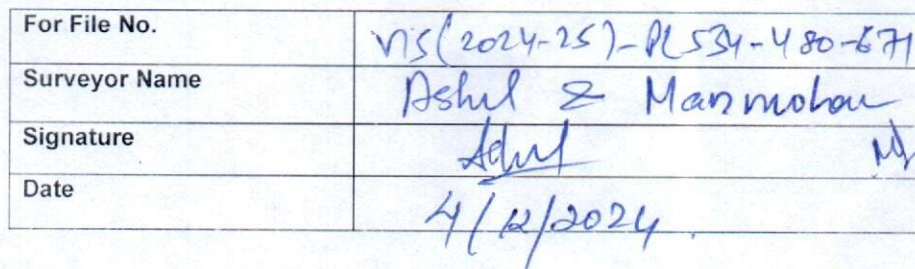 For File No. VIS(2024-25)-PL534-480-671
Surveyor Name Ashil & Manmohan
Signature
Date 4/12/2024.